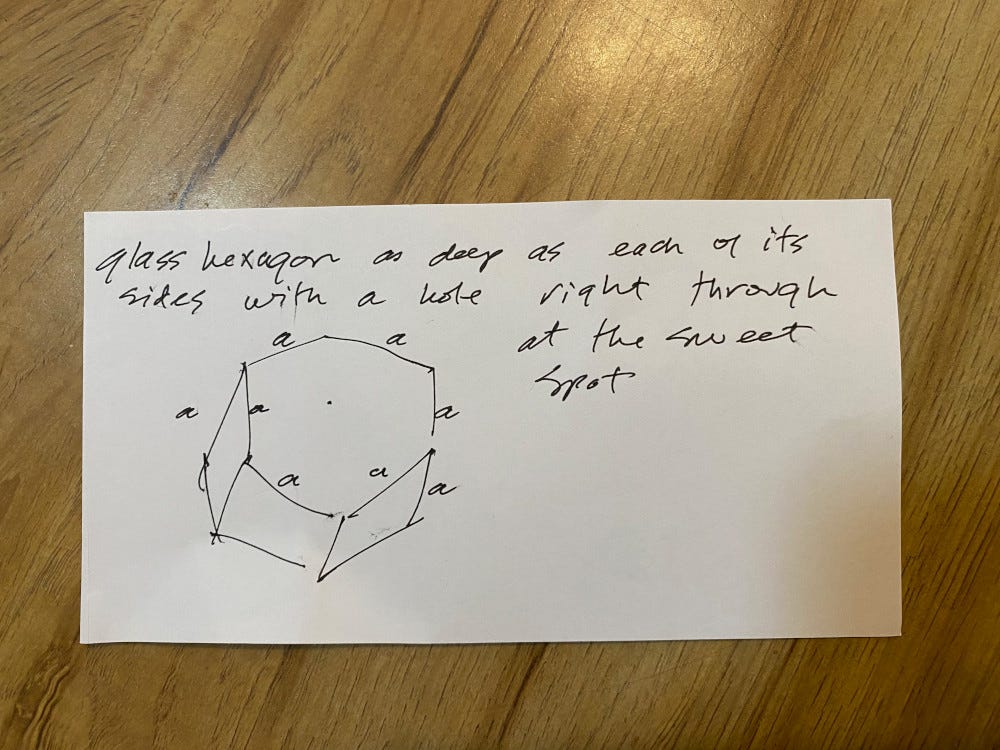 glass hexagon as deep as each of its
sides with a hole right through
at the sweet
spot
a a
a a a
a a
a